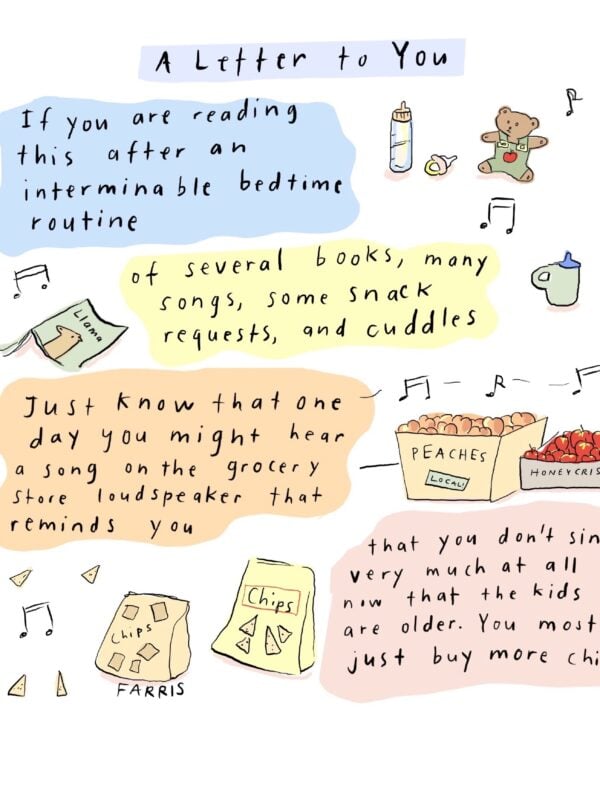 A Letter to You
If you are reading
this after an
interminable bedtime
routine
of several books, many
songs, some snack
requests, and cuddles
Llama
Just know that one
day you might hear
a song on the grocery
store loudspeaker that
reminds you
PEACHES
LOCAL!
HONEYCRIS
that you don't sin
very much at all
now that the kids
are older. You most
just buy more chi
Chips
CHIPS
FARRIS